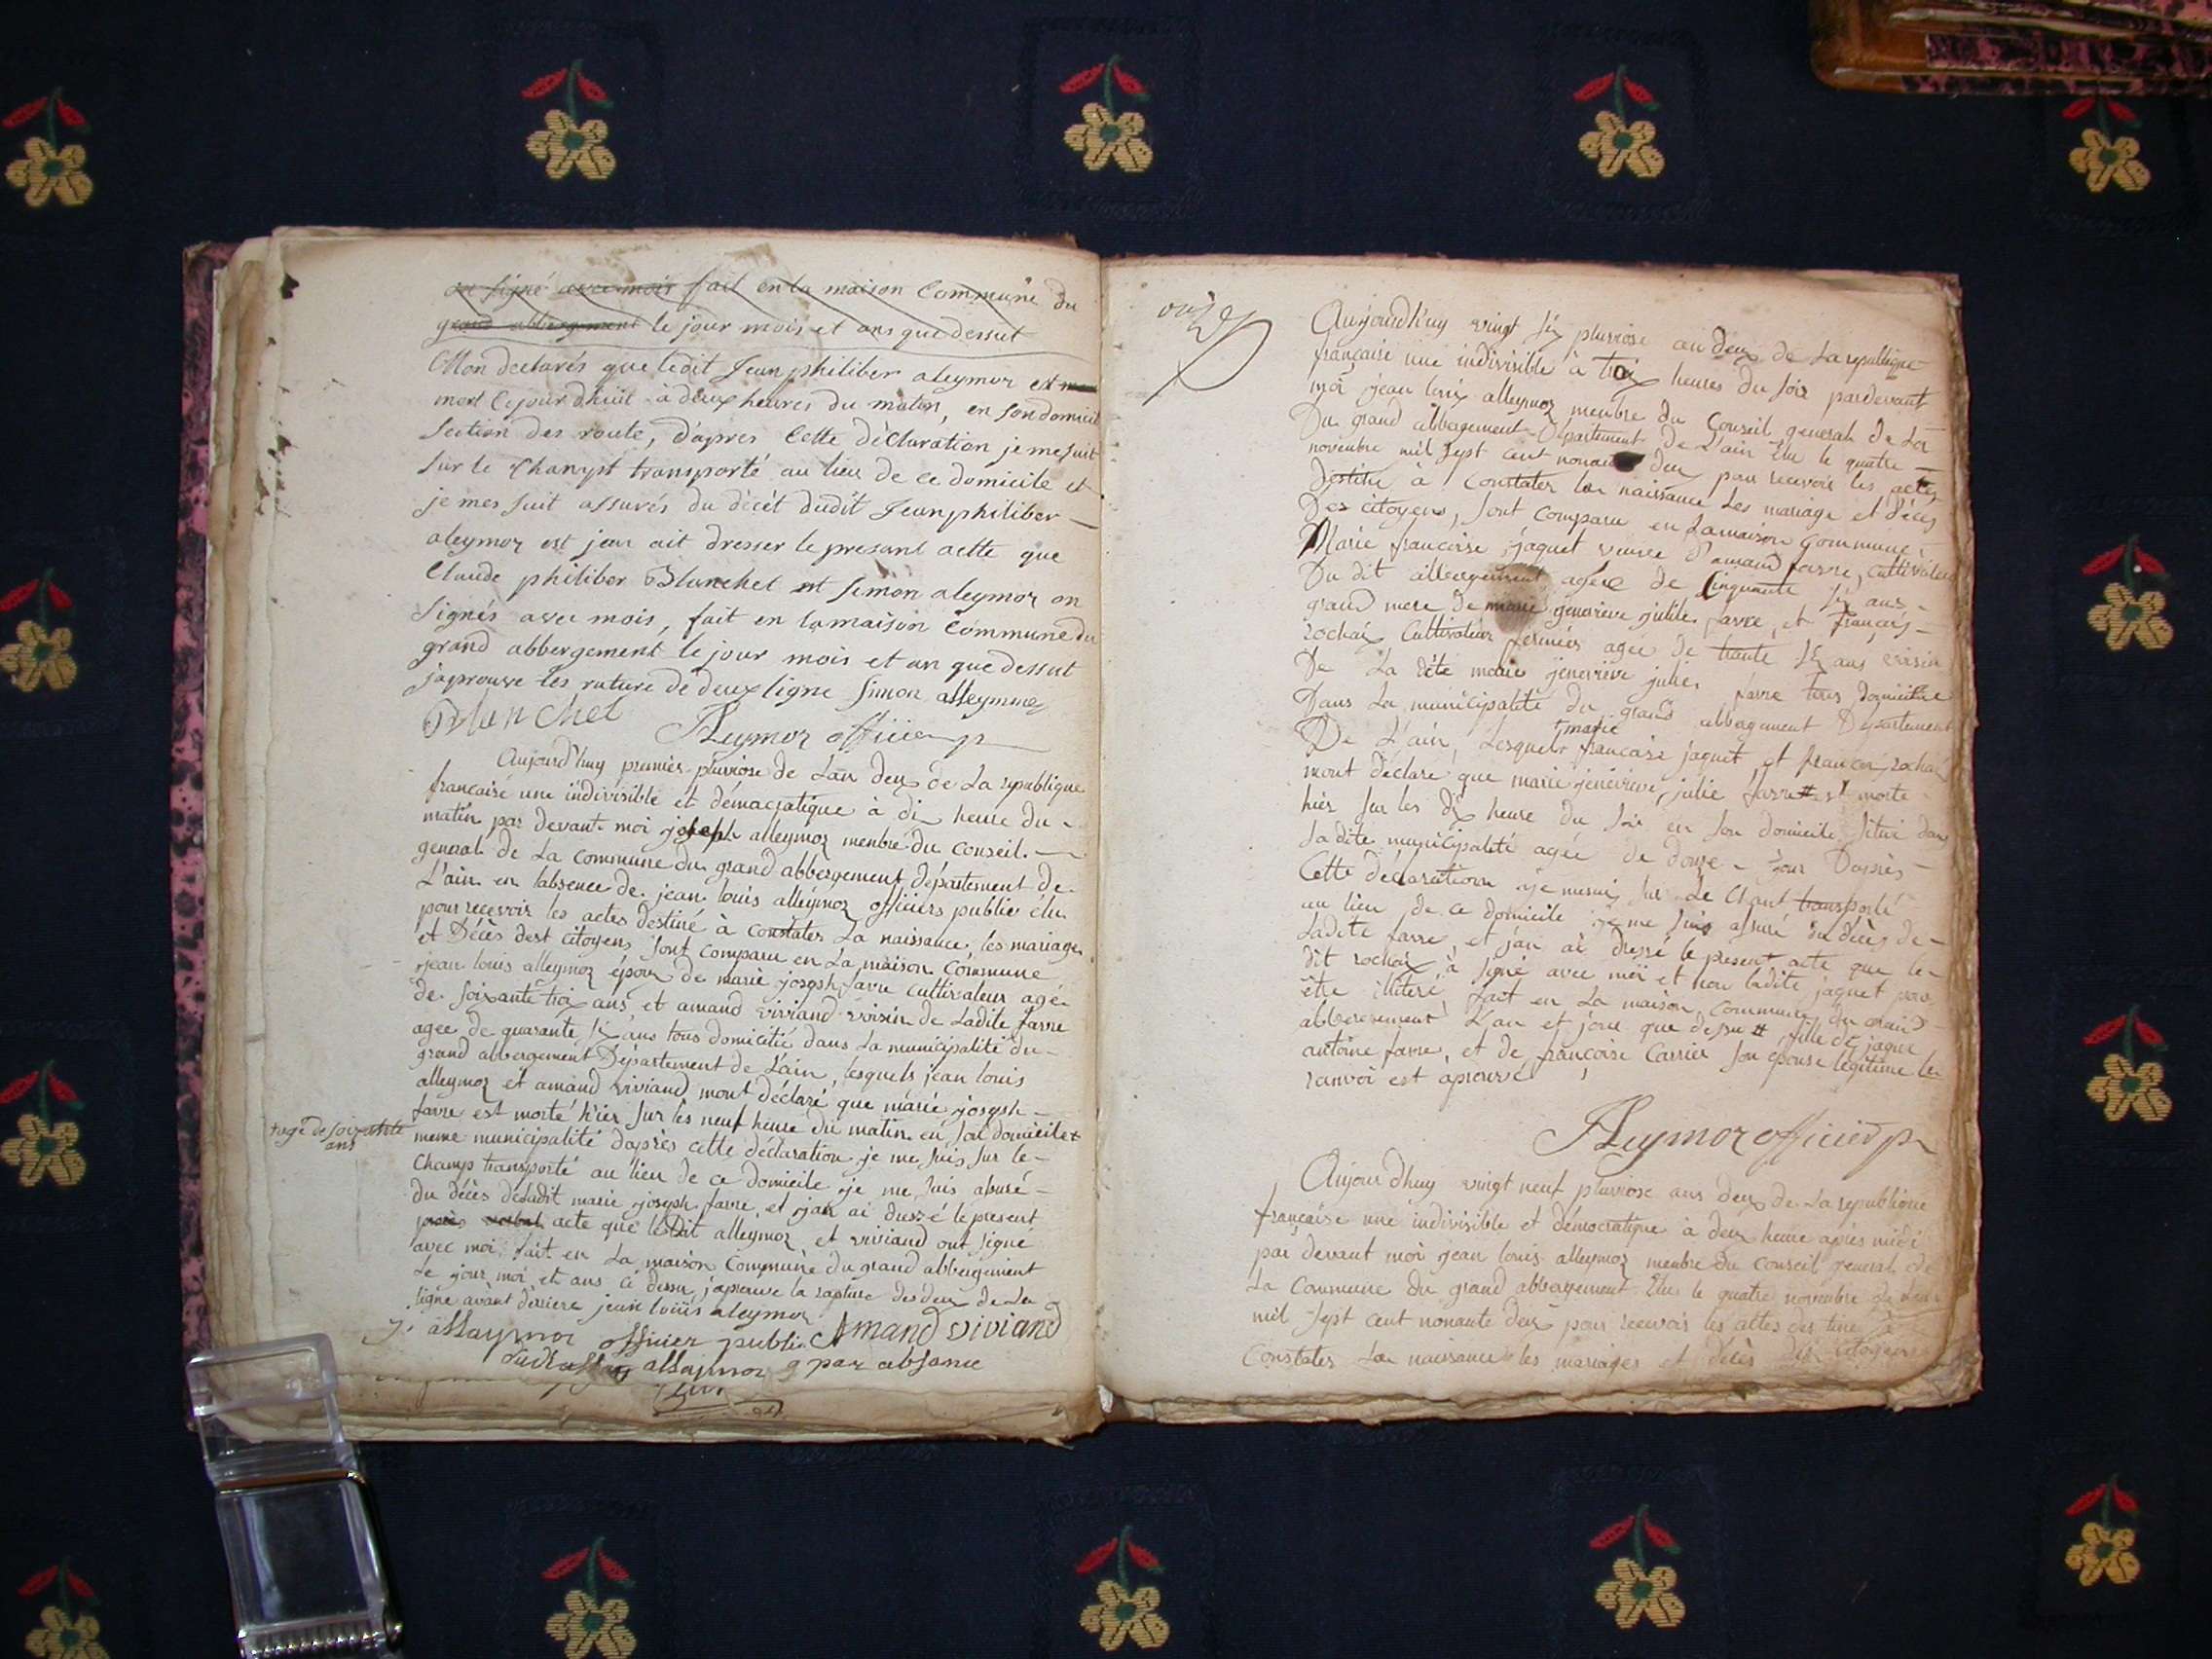 on signé avec mois fait en la maison Commune du
grand abbergement le jour mois et ans que dessut
Mon declarés que ledit Jean philiber aleymoz est
mort Cejour dhüit à deux heures du matin, en son domicil
Section des route, d'apres Cette déclaration je me suit
sur le Champt transporté au lieu de ce domicile et
je mes suit assurés du décét dudit Jean philiber
aleymoz est jean ait dresser le presant actte que
Claude philiber Blanchet et Simon aleymoz on
Signés avec mois, fait en la maison Commune du
grand abbergement le jour mois et an que dessut
japrouve les rature de deux ligne Simon alleymoz
Blanchet
Aleymoz officier p
Aujourd'huy premier pluviose de Lan deux de La republique
francaise une indivisible et démacratique à dix heure du
matin par devant moi joseph alleymoz menbre du conseil
general de La commune du grand abbergement département de
L'ain en labsence de jean louis alleymoz officiers public élu
pour recevoir les actes destiné à constater La naissance, les mariages
et Décès dest citoyens sont comparu en La maison Commune
jean louis alleymoz époux de marie josepsh favre cultivateur agé
de soixante troi ans, et amand viviand voisin de Ladite favre
agee de quarante six ans tous domicilié dans La municipalité du
grand abbergement Département de L'ain, lesquels jean louis
alleymoz et amand viviand mont déclaré que marie josepsh
favre est morte hier sur les neuf heure du matin en son domicile +
+ agé de soixante
ans
meme municipalité dapres cette déclaration je me suis sur le
Champ transporté au lieu de ce domicile je me suis assuré
du décès de ladit marie josepsh favre, et jan ai dressé le present
procès verbal acte que le Dit alleymoz et viviand ont signé
avec moi fait en La maison Commune du grand abbergement
Le jour moi et ans ci dessu japrouve la rapture des deux de La
ligne avant derniere jean louis aleymoz
j. allaymoz officier public Amand viviand
allaymoz par absance
Aujourdhuy vingt six pluviose an deux de La republique
française une indivisible à troix heures du soir pardevant
moi jean louis alleymoz menbre du Conseil general de La
Du grand abbergement Département de L'ain Elu le quatre
novembre mil sept cent nonante deux pour recevoir les actes
Destiné à Constater la naissance Les mariage et décès
Des citoyens, sont comparu en La maison Commune
Marie francoise jaquet veuve d'amand favre, cultivateur
Du dit abbergement agée de Cinquante six ans
grand mere de marie genevieve julie favre et françois
rochaix Cultivateur fermier agée de trante six ans voisin
De La dite marie jenevieve julie favre tous domicilié
Dans La municipalité du grand abbergement Departement
De L'ain, Lesquels + francoise jaquet et francois rochaix
+ marie
mont déclaré que marie jenevieve julie favre # est morte
hier sur les dix heure du soir en son domicile situé dans
ladite municipalité agée de douze jour Dapres
Cette déclaration je mesui sur Le Chant transporté
au lieu de ce domicile je me suis assuré du décès de
Ladite favre, et j'an ai dressé le present acte que le
dit rochaix à signé avec moi et non ladite jaquet pour
être illiteré fait en La maison Commune du grand
abbergement L'an et jour que dessu # fille de jaque
antoine favre, et de françoise Carrier son épouse légitime le
ranvoi est aprouvé
Aleymoz officier p
Aujour dhuy vingt neuf pluviose ans deux de La republique
française une indivisible et démocratique à deux heure après midi
par devant moi jean louis alleymoz menbre du conseil general de
La Commune du grand abbergement Elu le quatre novembre
mil sept cent nonante deux pour recevoir les actes destiné à
Constater La naissance les mariages et décès des citoyens